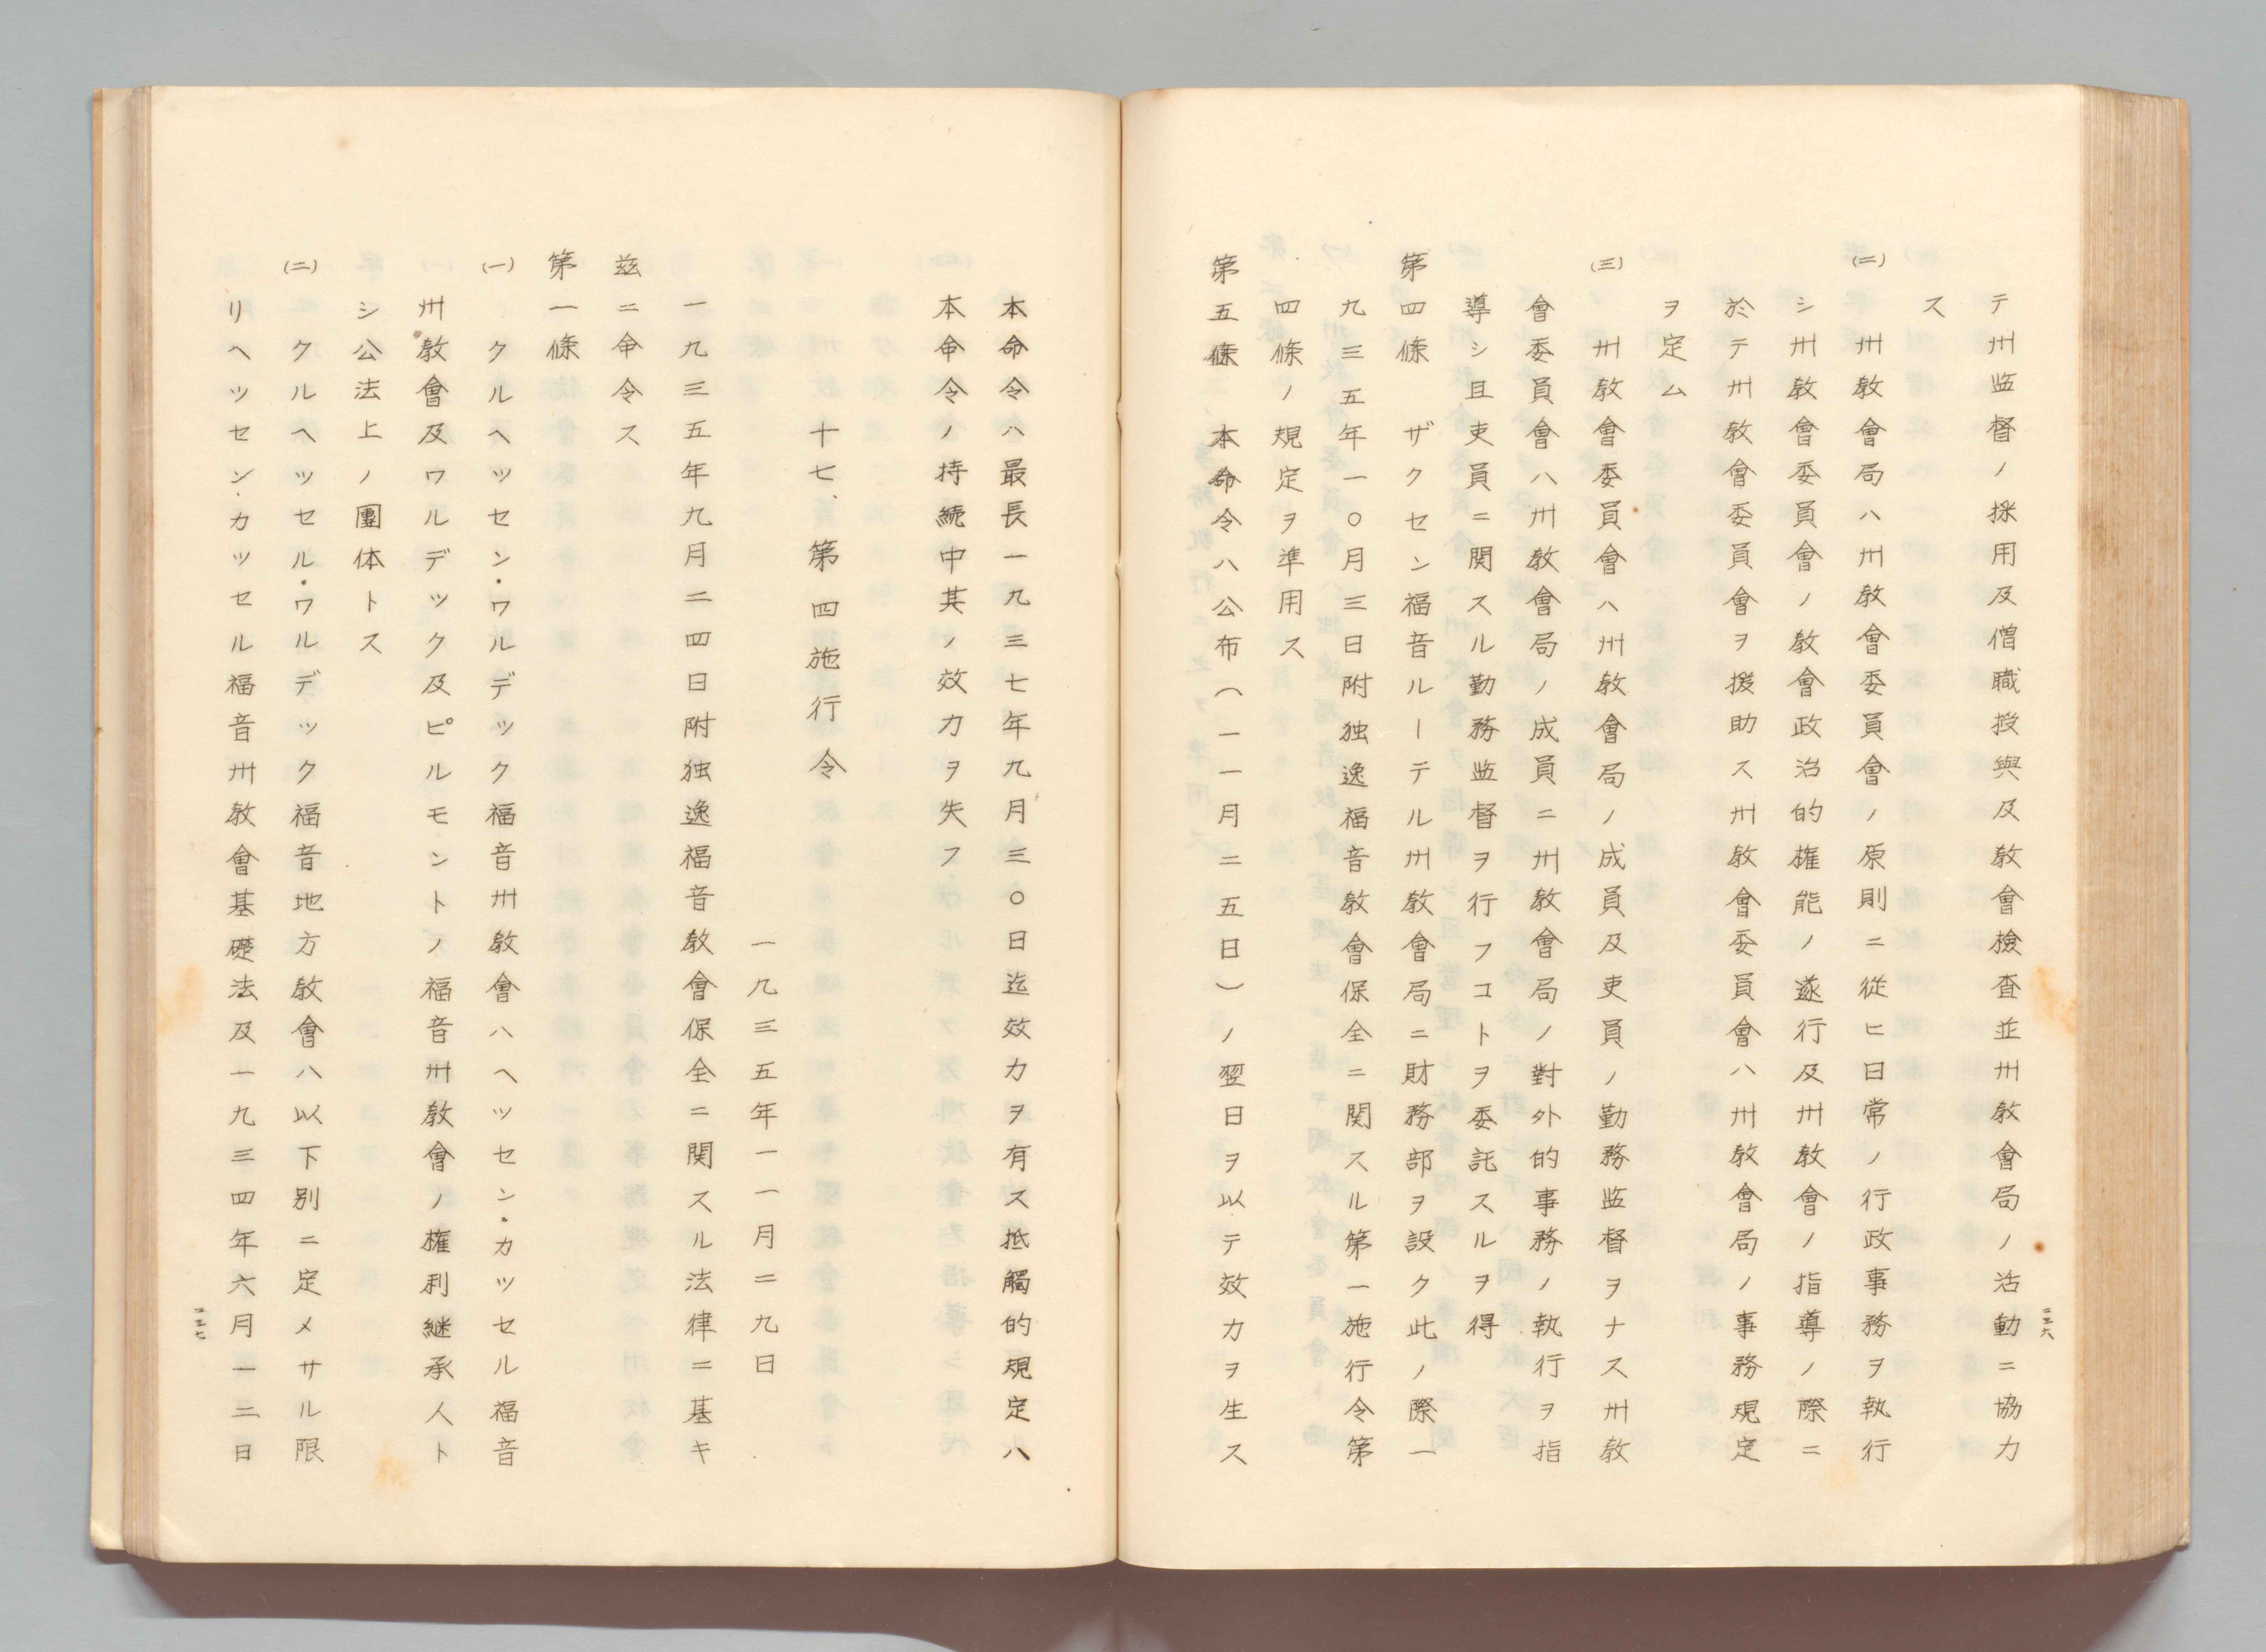 テ州監督ノ採用及僧職授與及教會檢査並州教會局ノ活動ニ協力
ス
(二)　州教會局ハ州教會委員會ノ原則ニ從ヒ日常ノ行政事務ヲ執行
シ州教會委員會ノ教會政治的権能ノ遂行及州教會ノ指導ノ際ニ
於テ州教會委員會ヲ援助ス州教會委員會ハ州教會局ノ事務規定
ヲ定ム
(三)　州教會委員會ハ州教會局ノ成員及吏員ノ勤務监督ヲナス州教
會委員會ハ州教會局ノ成員ニ州教會局ノ對外的事務ノ執行ヲ指
導シ且吏員ニ関スル勤務监督ヲ行フコトヲ委託スルヲ得
第四條　ザクセン福音ルーテル州教會局ニ財務部ヲ設ク此ノ際一
九三五年一〇月三日附独逸福音教會保全ニ関スル第一施行令第
四條ノ規定ヲ準用ス
第五條　本命令ハ公布(一一月二五日)ノ翌日ヲ以テ效力ヲ生ス
二三六
本命令ハ最長一九三七年九月三〇日迄效力ヲ有ス抵觸的規定ハ
本命令ノ持続中其ノ效力ヲ失フ
十七、第四施行令
一九三五年一一月二九日
一九三五年九月二四日附独逸福音教會保全ニ関スル法律ニ基キ
茲ニ命令ス
第一條
(一)　クルヘッセン・ワルデック福音州教會ハヘッセン・カッセル福音
州教會及ワルデック及ピルモントノ福音州教會ノ権利継承人ト
シ公法上ノ團体トス
(二)　クルヘッセル・ワルデック福音地方教會ハ以下別ニ定メサル限
リヘッセン・カッセル福音州教會基礎法及一九三四年六月一二日
二三七